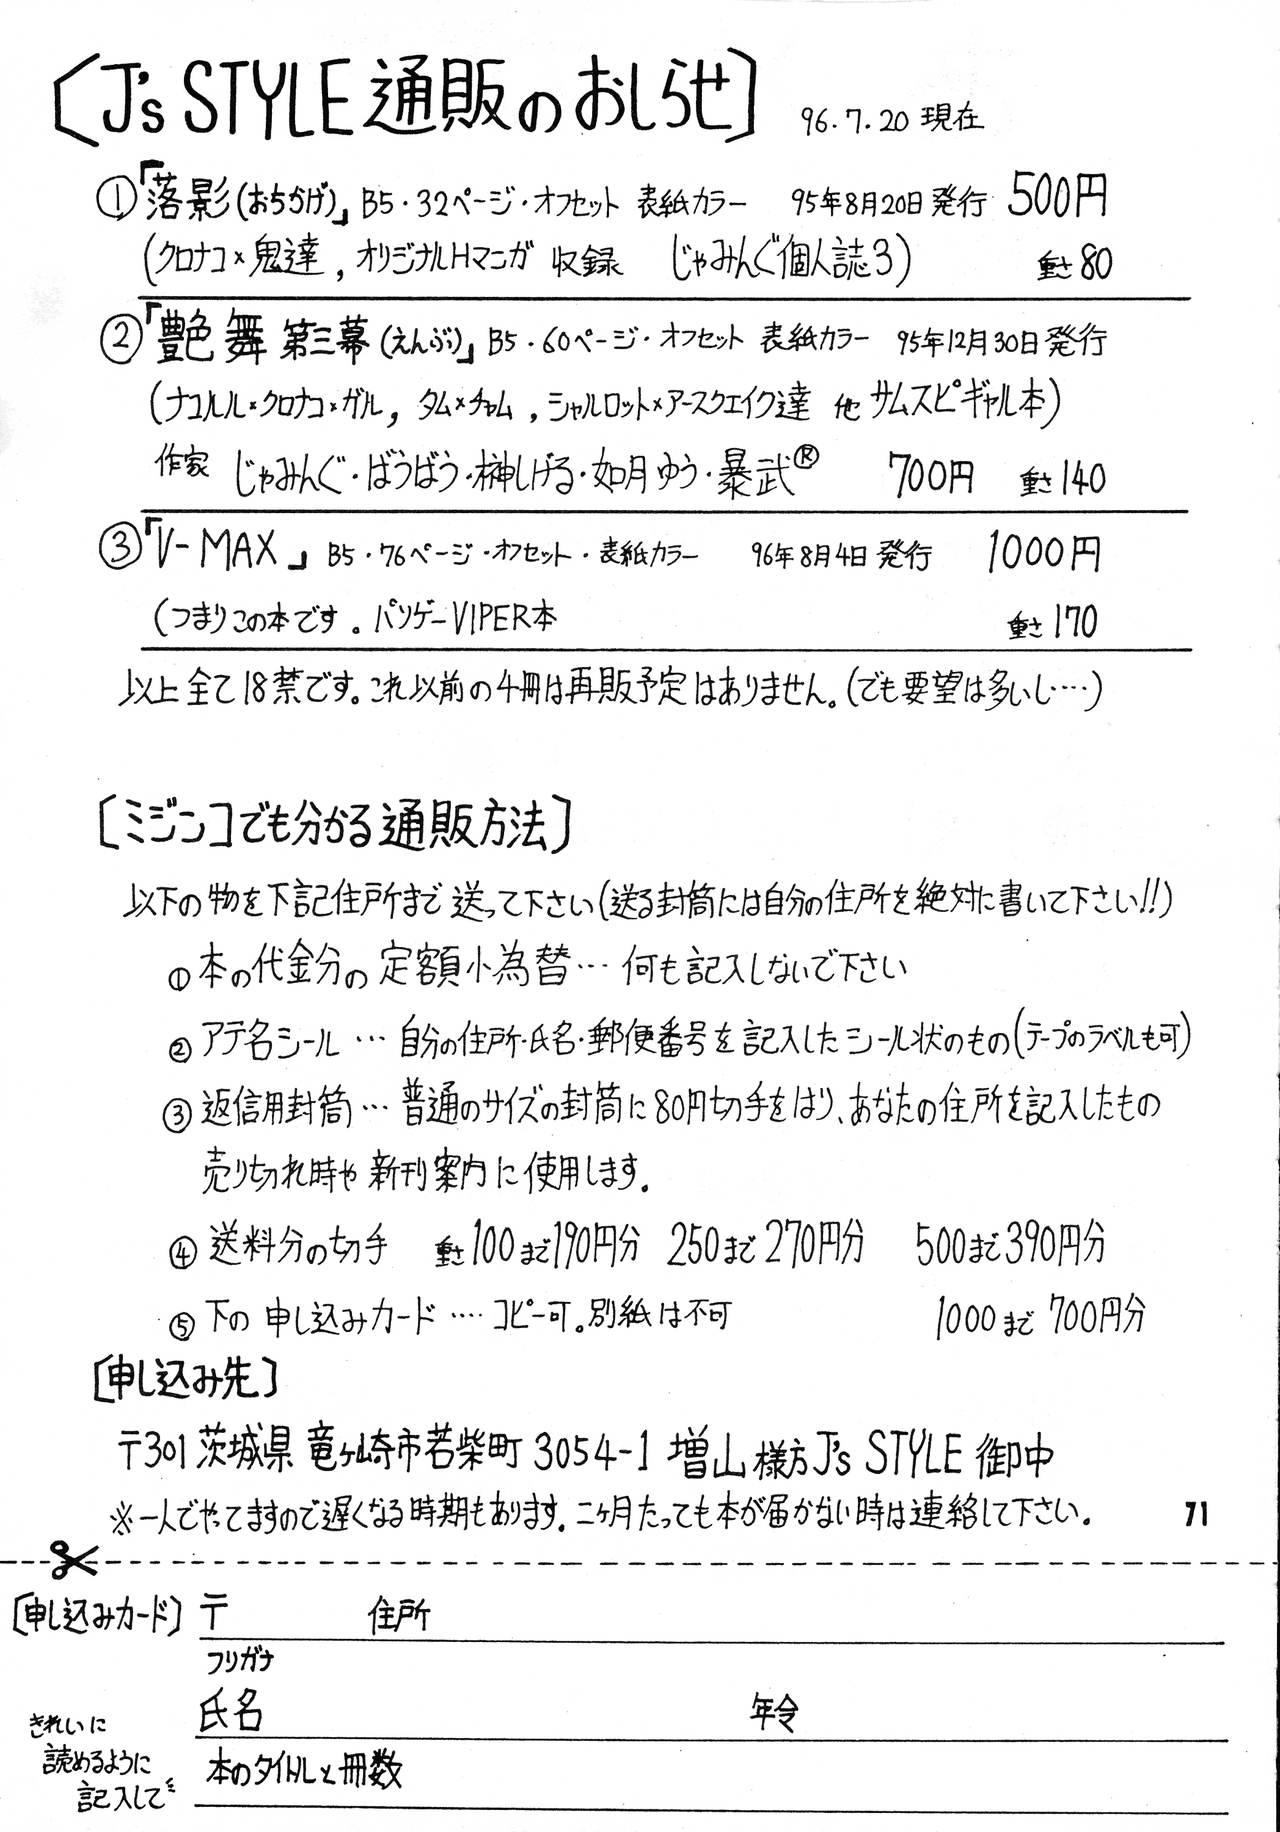 [J's STYLE 通販のおしらせ] 96.7.20 現在
①「落影(おちかげ)」B5・32ページ・オフセット 表紙カラー 95年8月20日発行 500円
(クロナコ×鬼達, オリジナルHマンガ 収録 じゃみんぐ個人誌3) 重さ80
②「艶舞 第三幕(えんぶり)」B5・60ページ・オフセット 表紙カラー 95年12月30日発行
(ナコルル×クロナコ×ガル, タム×チャム, シャルロット×アースクエイク達 他 サムスピギャル本)
作家 じゃみんぐ・ばうばう・榊しげる・如月ゆう・暴武® 700円 重さ140
③「V-MAX」B5・76ページ・オフセット・表紙カラー 96年8月4日発行 1000円
(つまりこの本です。パソゲーVIPER本 重さ170
以上全て18禁です。これ以前の4冊は再販予定はありません。(でも要望は多いし‥‥)
[ミジンコでも分かる通販方法]
以下の物を下記住所まで送って下さい(送る封筒には自分の住所を絶対に書いて下さい!!)
①本の代金分の定額小為替… 何も記入しないで下さい
②アテ名シール … 自分の住所・氏名・郵便番号を記入したシール状のもの(テープのラベルも可)
③返信用封筒… 普通のサイズの封筒に80円切手をはり、あなたの住所を記入したもの
売り切れ時や新刊案内に使用します。
④送料分の切手 重さ100まで190円分 250まで270円分 500まで390円分
⑤下の申し込みカード ‥‥ コピー可。別紙は不可 1000まで 700円分
[申し込み先]
〒301 茨城県竜ヶ崎市若柴町3054-1 増山様方 J's STYLE 御中
※一人でやってますので遅くなる時期もあります。二ヶ月たっても本が届かない時は連絡して下さい。 71
[申し込みカード] 〒 住所
フリガナ
氏名 年令
きれいに
読めるように
記入して
本のタイトルと冊数